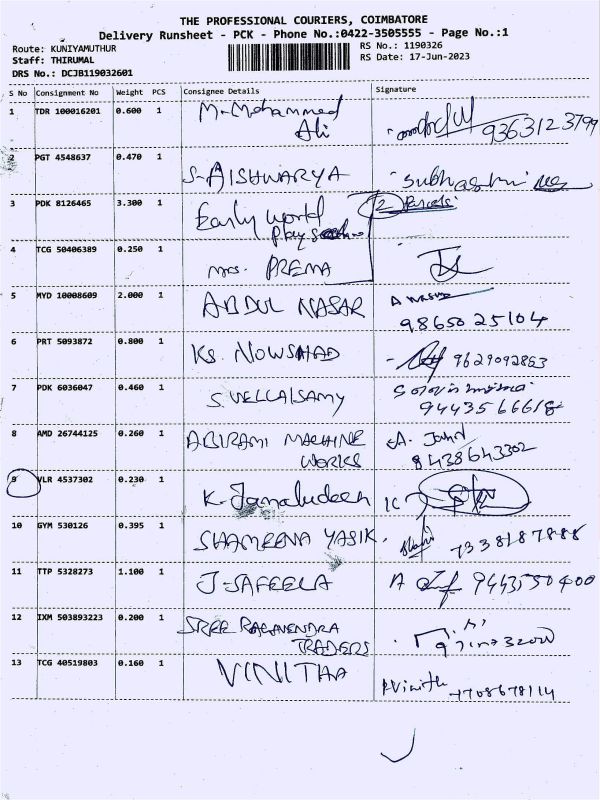 THE PROFESSIONAL COURIERS, COIMBATORE
Delivery Runsheet - PCK - Phone No.:0422-3505555 - Page No.:1
Route: KUNIYAMUTHUR
Staff: THIRUMAL
DRS No.: DCJB119032601
RS No.: 1190326
RS Date: 17-Jun-2023
S No Consignment No Weight PCS Consignee Details Signature
1 TDR 100016201 0.600 1 M. Mohammed
Ali 9363123799
2 PGT 4548637 0.470 1 S-AISHWARYA Subhashini
3 PDK 8126465 3.300 1 Early world 2 Parcels
Play
4 TCG 50406389 0.250 1 mrs. PREMA
5 MYD 10008609 2.000 1 ABDUL NASAR
9865025104
6 PRT 5093872 0.800 1 Ks. NOWSHAD 9629092863
7 PDK 6036047 0.460 1 S.VELLAISAMY
9443566618
8 AMD 26744125 0.260 1 ABIRAMI MACHINE A. John
WORKS 8438643302
9 VLR 4537302 0.230 1 K. Jamaludeen
10 GYM 530126 0.395 1 SHAMEENA YASIK. 7338187888
11 TTP 5328273 1.100 1 J-SAFEELA A 9443530400
12 IXM 503893223 0.200 1 SREE RAGAVENDRA
TRADERS
13 TCG 40519803 0.160 1 VINITHA Vinith
7708678114